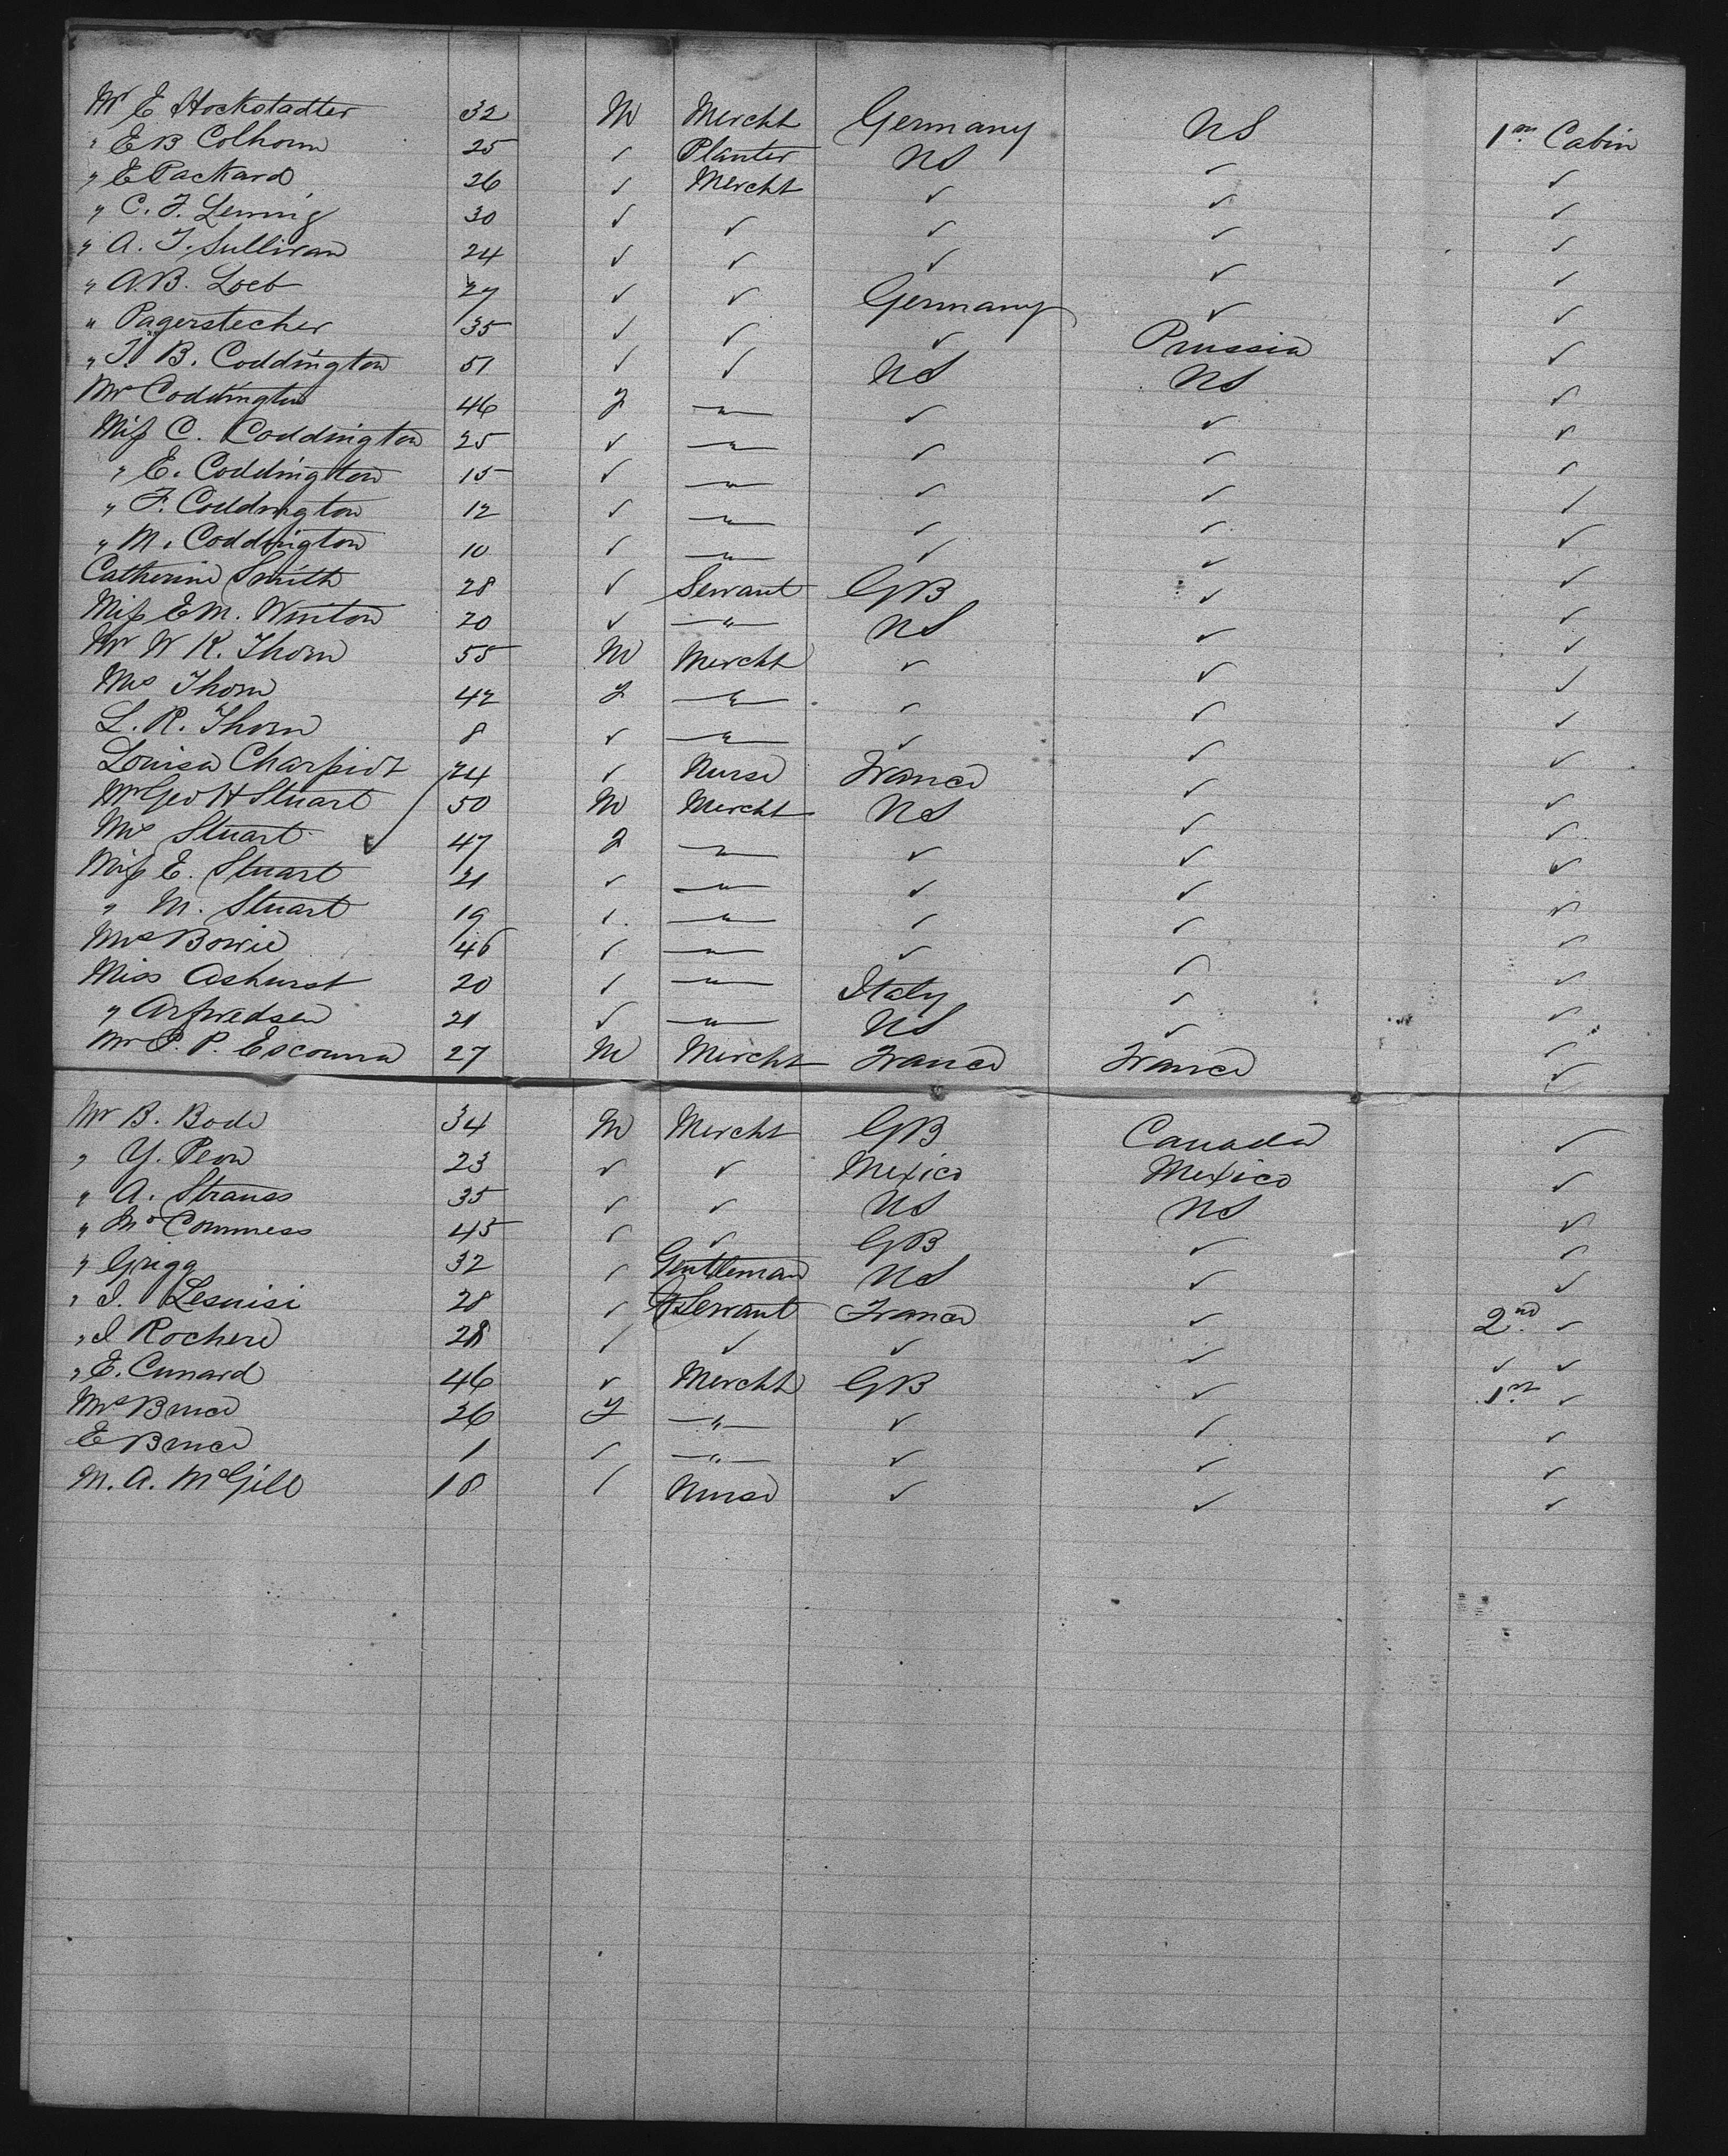 Mr E Hockstadter 32 M Mercht Germany US 1st Cabin
" E B Colhoun 25 ✓ Planter US ✓ ✓
" E Packard 26 ✓ Mercht ✓ ✓ ✓
" C. F. Leming 30 ✓ ✓ ✓ ✓ ✓
" A. T. Sullivan 24 ✓ ✓ ✓ ✓ ✓
" A. B. Loeb 27 ✓ ✓ Germany ✓ ✓
" Pagerstecher 35 ✓ ✓ ✓ Prussia ✓
" T. B. Coddington 51 ✓ ✓ US US ✓
Mrs Coddington 46 F — " — ✓ ✓ ✓
Miss C. Coddington 25 ✓ — " — ✓ ✓ ✓
" E. Coddington 15 ✓ — " — ✓ ✓ ✓
" F. Coddington 12 ✓ — " — ✓ ✓ ✓
" M. Coddington 10 ✓ — " — ✓ ✓ ✓
Catherine Smith 28 ✓ Servant GB ✓ ✓
Miss E M. Winton 20 ✓ — " — US ✓ ✓
Mr W K. Thorn 55 M Mercht ✓ ✓ ✓
Mrs Thorn 42 F — " — ✓ ✓ ✓
L. K. Thorn 8 ✓ — " — ✓ ✓ ✓
Louisa 24 ✓ Nurse France ✓ ✓
Mr Geo H Stuart 50 M Mercht US ✓ ✓
Mrs Stuart 47 F — " — ✓ ✓ ✓
Miss E. Stuart 21 ✓ — " — ✓ ✓ ✓
" M. Stuart 19 ✓ — " — ✓ ✓ ✓
Mrs Bowie 46 ✓ — " — ✓ ✓ ✓
Miss Ashurst 20 ✓ — " — Italy ✓ ✓
" Arfwedsen 21 ✓ — " — US ✓ ✓
Mr P. Escouma 27 M Mercht France France ✓
Mr B. Bode 34 M Mercht GB Canada ✓
" Y. Peon 23 ✓ ✓ Mexico Mexico ✓
" A. Strauss 35 ✓ ✓ US US ✓
" McComness 45 ✓ ✓ GB ✓ ✓
" Grigg 32 ✓ Gentleman US ✓ ✓
" Lesuisi 28 ✓ Servant France ✓ 2nd ✓
" Rochere 28 ✓ ✓ ✓ ✓ ✓ ✓
" E. Cunard 46 ✓ Mercht GB ✓ 1st ✓
Mrs Bruce 26 F — " — ✓ ✓ ✓
E Bruce 1 ✓ — " — ✓ ✓ ✓
M. A. McGill 18 ✓ Nurse ✓ ✓ ✓